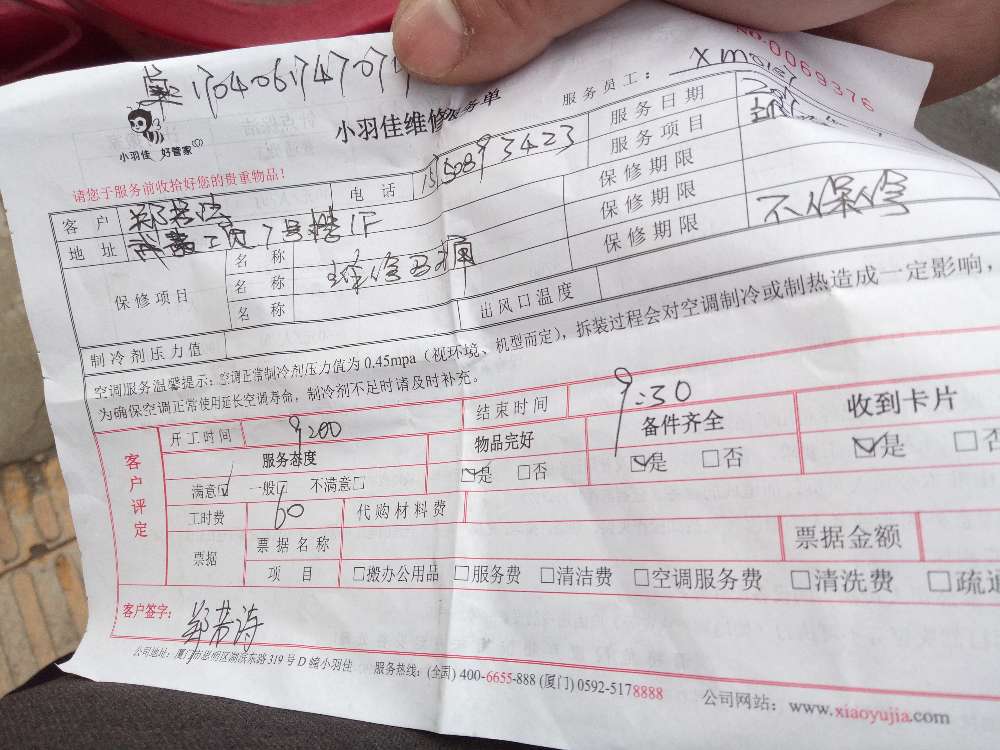 No.0069376
单17040617470
小羽佳维修服务单
服务员工：xm0157
小羽佳 好管家
请您于服务前收拾好您的贵重物品！
客 户
电 话
服务日期
地 址 工 7号楼1F
服务项目
保修项目
名 称
名 称
名 称
保修期限
保修期限
保修期限
不保修
制冷剂压力值
出风口温度
空调服务温馨提示：空调正常制冷剂压力值为 0.45mpa（视环境、机型而定），拆装过程会对空调制冷或制热造成一定影响，
为确保空调正常使用延长空调寿命，制冷剂不足时请及时补充。
客户评定
开工时间 9:00
结束时间 9:30
服务态度
物品完好
备件齐全
收到卡片
满意☑ 一般☐ 不满意☐
☑是 ☐否
☑是 ☐否
☑是 ☐否
工时费 60
代购材料费
票据
票据名称
票据金额
项 目 ☐搬办公用品 ☐服务费 ☐清洁费 ☐空调服务费 ☐清洗费 ☐疏通
客户签字：
公司地址：厦门市思明区湖滨东路 319 号 D 幢小羽佳 服务热线：(全国) 400-6655-888 (厦门) 0592-5178888 公司网站：www.xiaoyujia.com